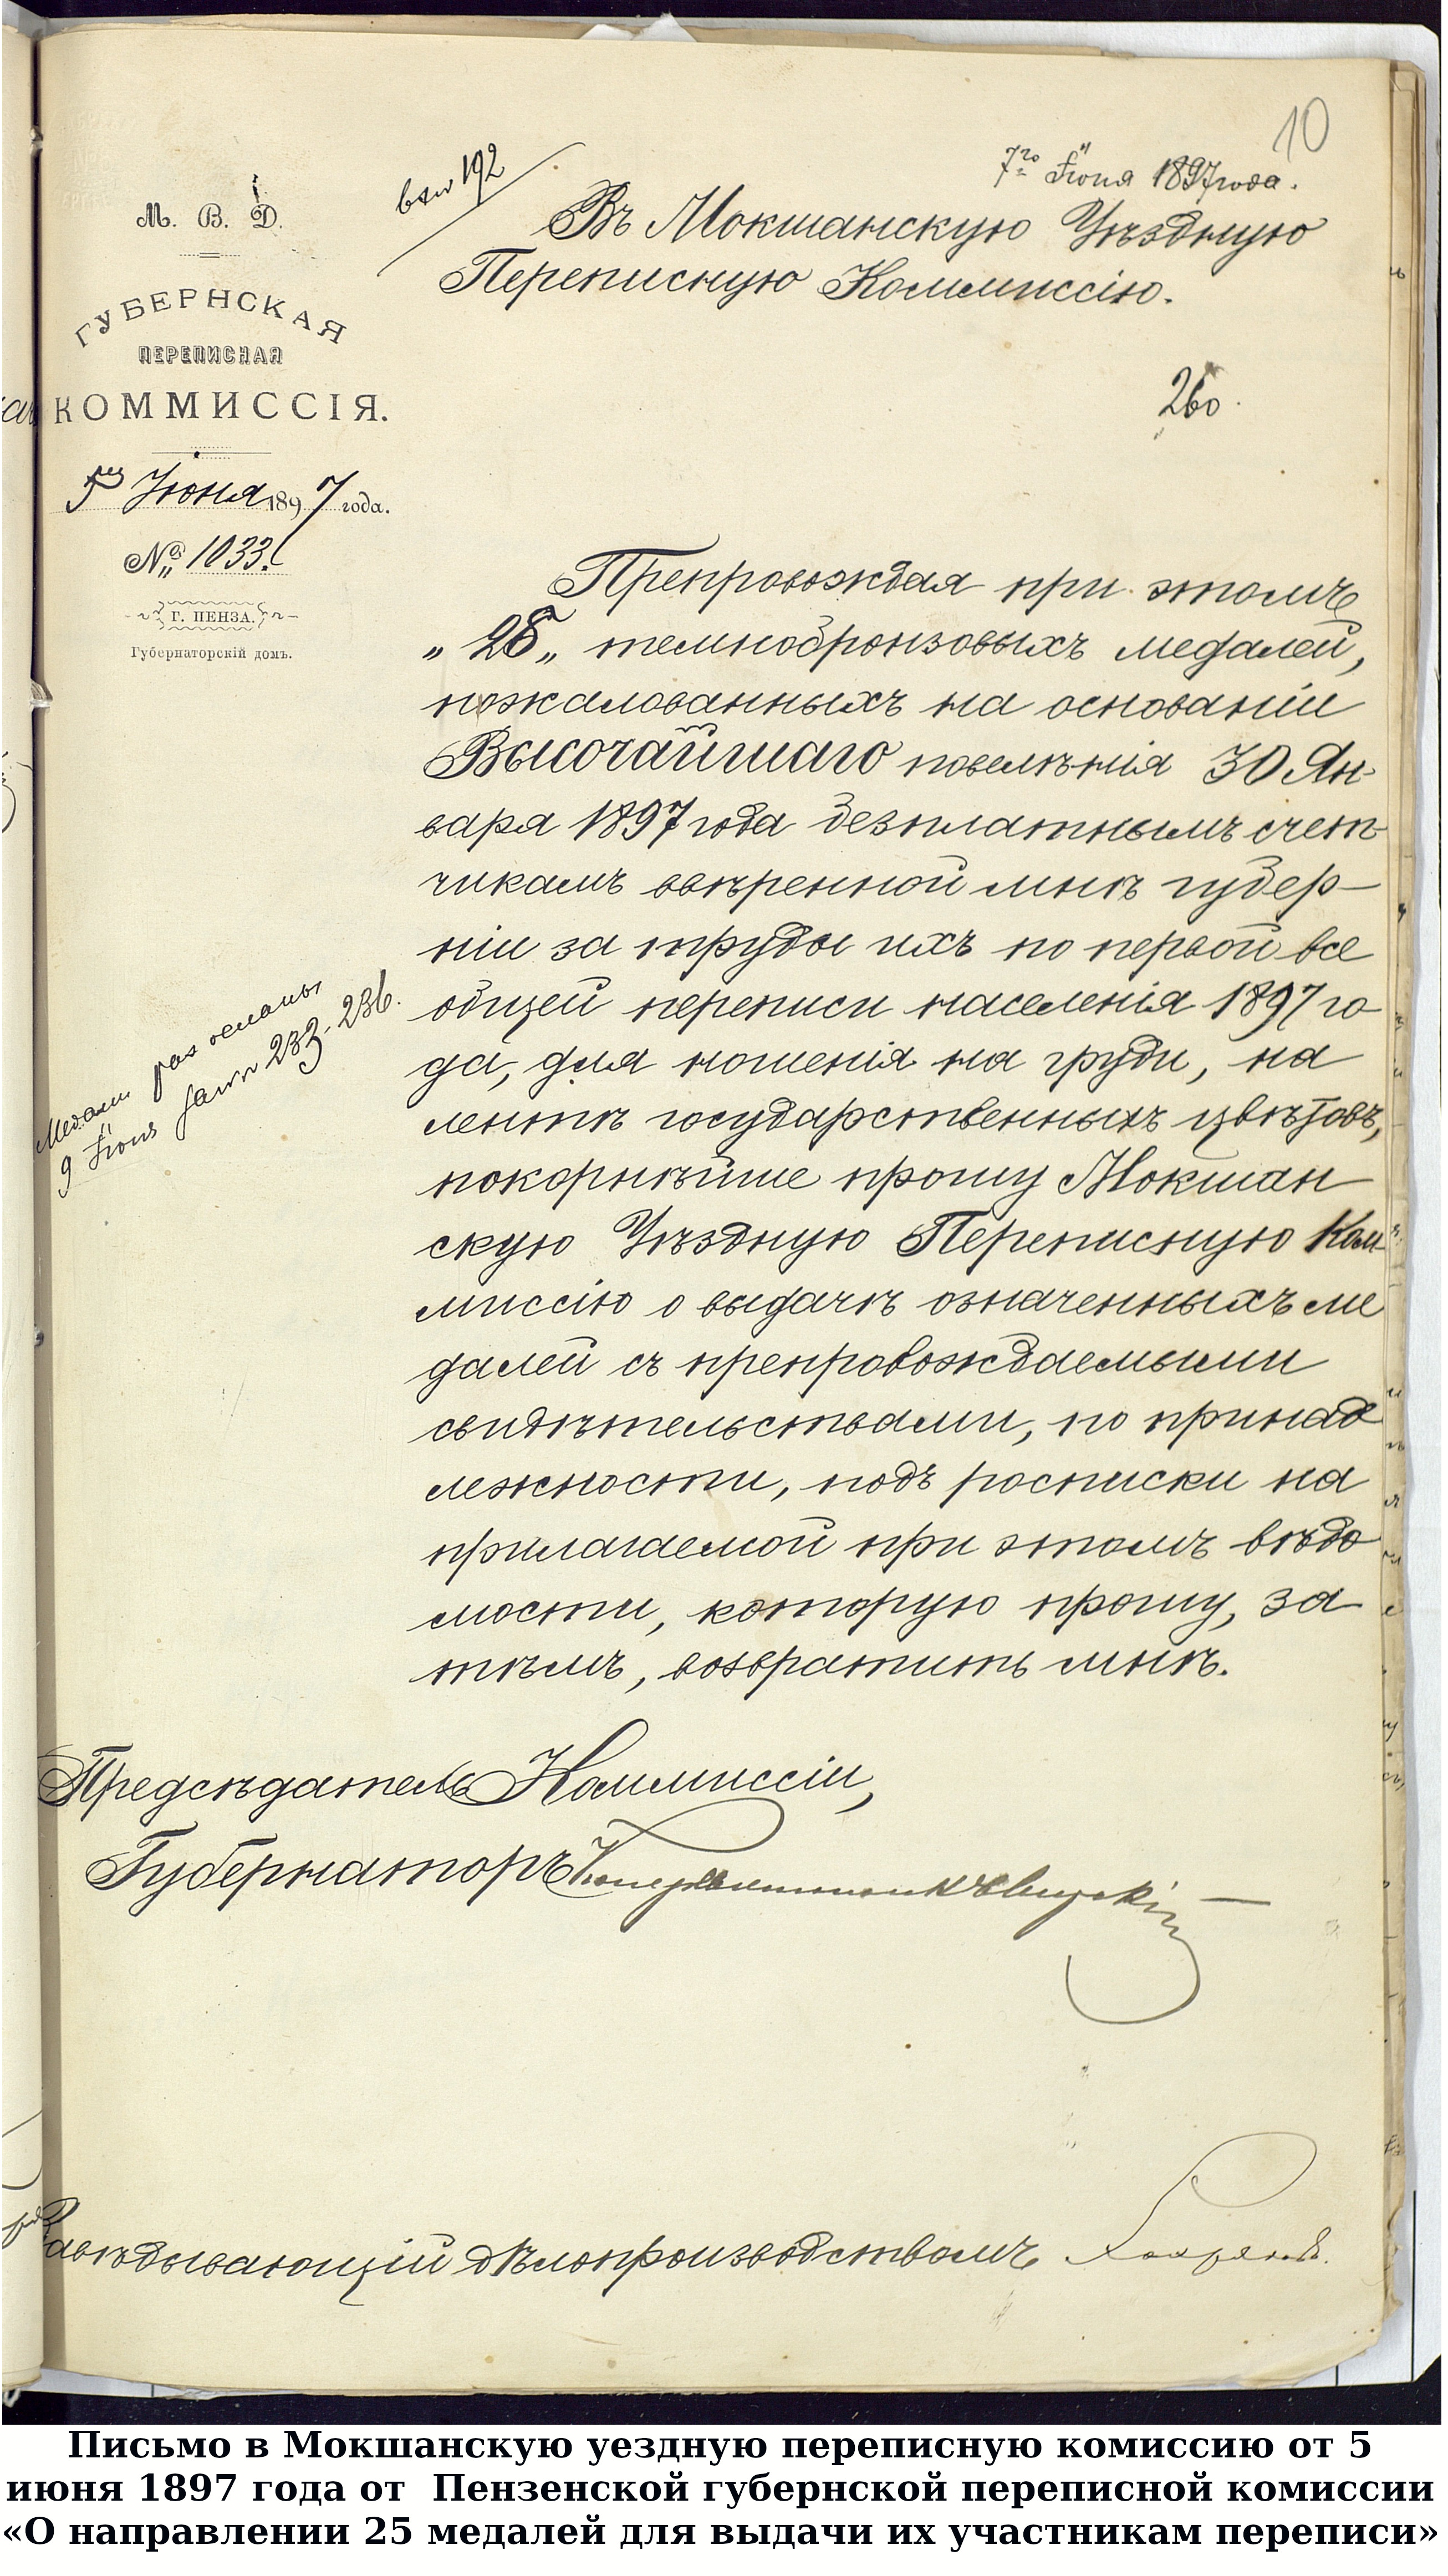 10
7го Iюня 1897 года.
вхн 192
М. В. Д.
ГУБЕРНСКАЯ
ПЕРЕПИСНАЯ
КОММИССІЯ.
5 Iюня 1897 года.
№ 1033.
Г. ПЕНЗА.
Губернаторскій домъ.
Въ Мокшанскую Уѣздную
Переписную Коммиссію.
260.
Препровождая при этомъ
„25„ темнобронзовыхъ медалей,
пожалованныхъ на основаніи
Высочайшаго повелѣнія 30 Ян-
варя 1897 года безплатнымъ счет-
чикамъ ввѣренной мнѣ губер-
ніи за труды ихъ по первой все
общей переписи населенія 1897 го
да, для ношенія на груди, на
лентѣ государственныхъ цвѣтовъ,
покорнѣйше прошу Мокшан
скую Уѣздную Переписную Ком
миссію о выдачѣ означенныхъ ме
далей съ препровождаемыми
свидѣтельствами, по принад
лежности, подъ росписки на
прилагаемой при этомъ вѣдо
мости, которую прошу, за
тѣмъ, возвратить мнѣ.
Медали разосланы
9 Iюня 233-236.
Предсѣдатель Коммиссіи,
Губернаторъ
Завѣдывающій дѣлопроизводствомъ
Письмо в Мокшанскую уездную переписную комиссию от 5
июня 1897 года от Пензенской губернской переписной комиссии
«О направлении 25 медалей для выдачи их участникам переписи»